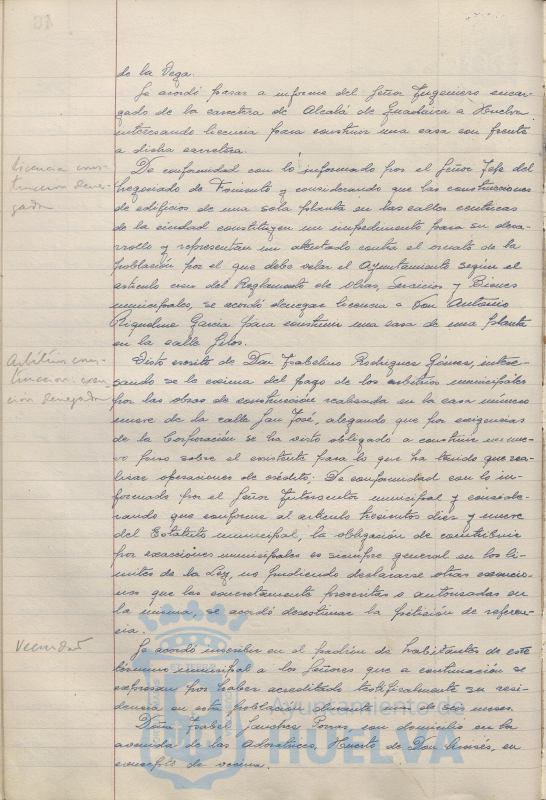 de la Vega.
Se acordó pasar a informe del Señor Ingeniero encar-
gado de la carretera de Alcalá de Guadaira a Huelva
interesando licencia para construir una casa con frente
a dicha carretera.
Licencia cons-
truccion dene-
gada
De conformidad con lo informado por el Señor Jefe del
Negociado de Fomento y considerando que las construcciones
de edificios de una sola planta en las calles centricas
de la ciudad constituyen un impedimento para su desa-
rrollo y representan un atentado contra el ornato de la
población por el que debe velar el Ayuntamiento según el
articulo del Reglamento de Obras, Servicios y Bienes
municipales, se acordó denegar licencia a Don Antonio
Riquelme Garcia para construir una casa de una planta
en la calle
Arbitrios cons-
truccion exen-
cion denegada
Visto escrito de Don Isabelino Rodriguez Gómez, intere-
sando se le exima del pago de los arbitrios municipales
por las obras de construcción realizada en la casa número
nueve de la calle San José, alegando que por exigencias
de la Corporación se ha visto obligado a construir un nue-
vo piso sobre el existente para lo que ha tenido que rea-
lizar operaciones de crédito: De conformidad con lo in-
formado por el Señor Interventor municipal y conside-
rando que conforme al articulo trescientos diez y nueve
del Estatuto municipal, la obligación de contribuir
por exacciones municipales es siempre general en los li-
mites de la Ley, no pudiendo declararse otras exencio-
nes que las concretamente previstas o autorizadas en
la misma, se acordó desestimar la petición de referen-
cia.
Vecindad
Se acordó inscribir en el padrón de habitantes de este
término municipal a los Señores que a continuación se
expresan por haber acreditado testificalmente su resi-
dencia en esta población durante mas de seis meses.
Doña Isabel Sanchez Porras con domicilio en la
avenida de las Adoratrices, Huerto de Don Moisés, en
concepto de vecina.
Ayuntamiento de
HUELVA